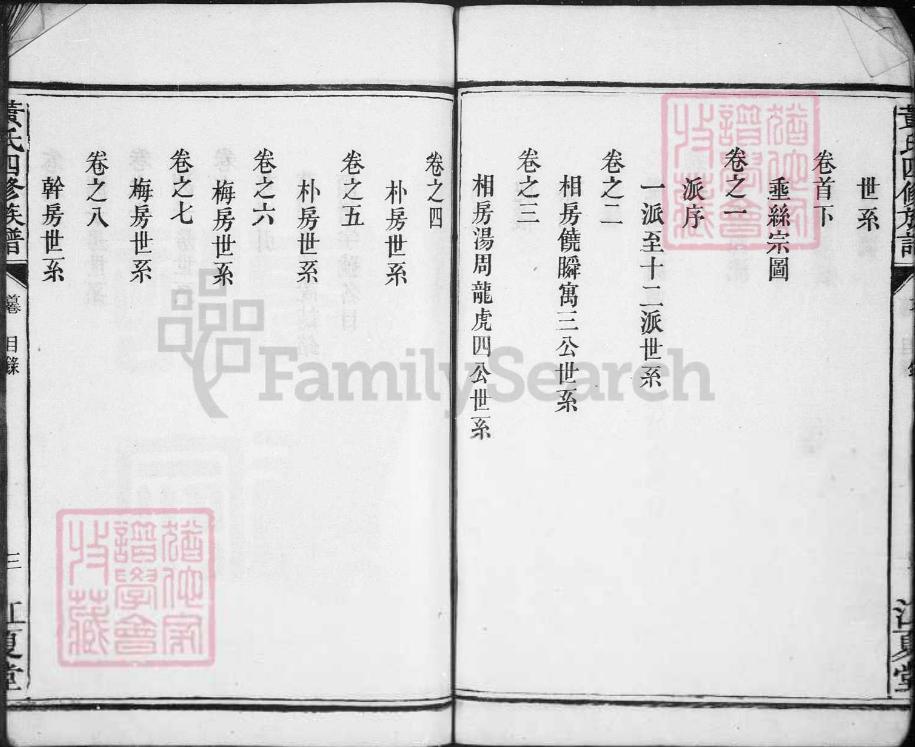 世系
卷首下
垂絲宗圖
卷之一
派序
一派至十二派世系
卷之二
相房饒瞬寓三公世系
卷之三
相房湯周龍虎四公世系
黃氏四修族譜
江夏堂
卷之四
朴房世系
卷之五
朴房世系
卷之六
梅房世系
卷之七
梅房世系
卷之八
幹房世系
黃氏四修族譜
目錄
三
江夏堂
FamilySearch